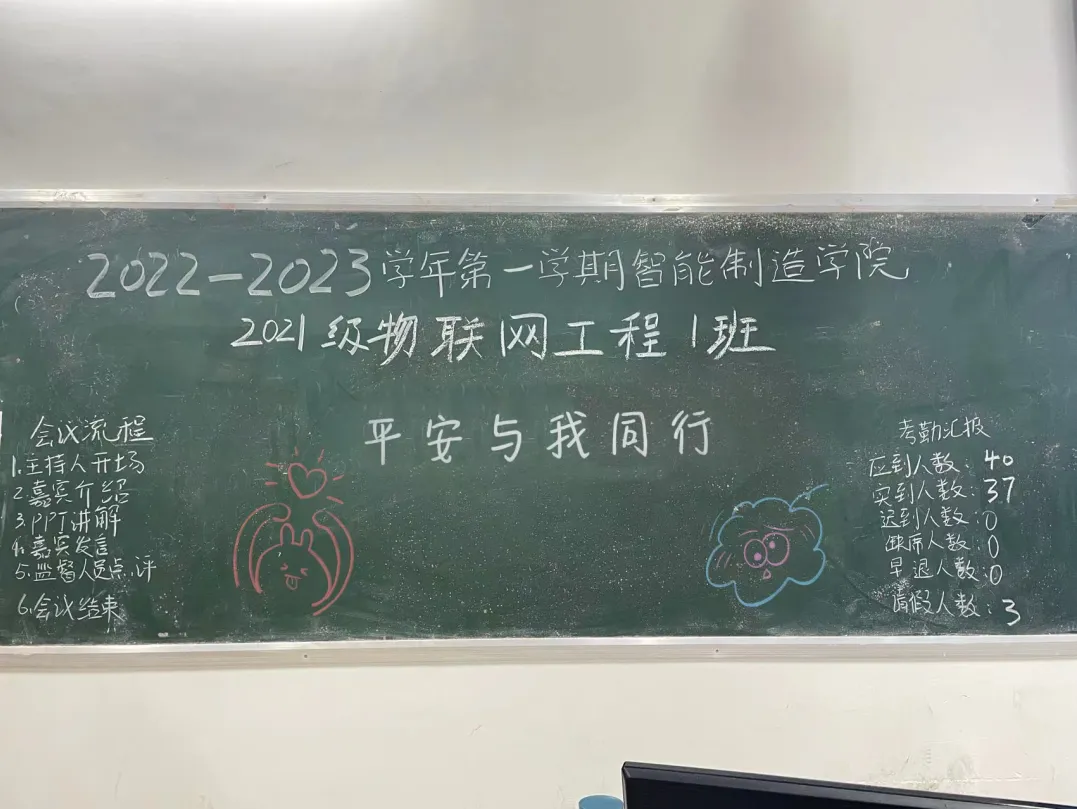 2022-2023学年第一学期智能制造学院
2021级物联网工程1班
平安与我同行
会议流程
1.主持人开场
2.嘉宾介绍
3.PPT讲解
4.嘉宾发言
5.监督人员点评
6.会议结束
考勤汇报
应到人数:40
实到人数:37
迟到人数:0
缺席人数:0
早退人数:0
请假人数:3